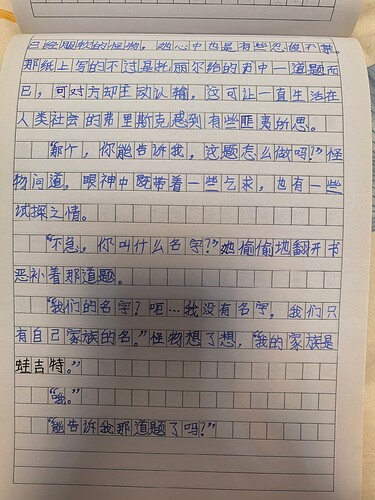 已经服软的怪物，她心中也是有些忍俊不禁。
那纸上写的不过是托丽尔给的书中一道题而
已，可对方却主动认输，这可让一直生活在
人类社会的弗里斯克感到有些匪夷所思。
“那个，你能告诉我，这题怎么做吗？”怪
物问道，眼神中既带着一些乞求，也有一些
试探之情。
“不急，你叫什么名字？”她偷偷地翻开书
恶补着那道题。
“我们的名字？呃…我没有名字，我们只
有自己家族的名。”怪物想了想，“我的家族是
蛙吉特。”
“哦。”
“能告诉我那道题了吗？”